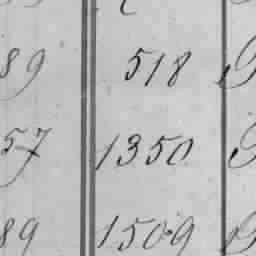 89 518
57 1350
89 1509